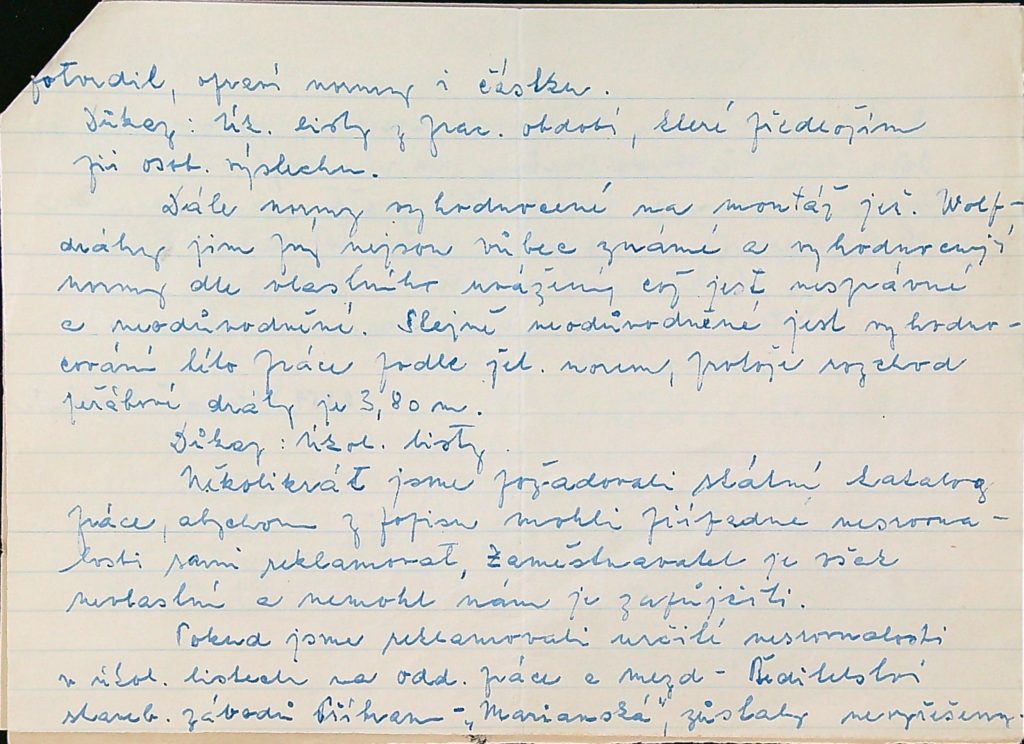 potvrdil, opraví normy i částku.
Důkaz: Úk. listy z prac. období, které předložím
při osob. výslechu.
Dále normy vyhodnocené na montáž jeř. Wolf-
dráhy jim prý nejsou vůbec známé a vyhodnocují
normy dle vlastního uvážení což jest nesprávné
a neodůvodněné. Stejně neodůvodněné jest vyhodno-
cování této práce podle žel. norem, protože rozchod
jeřábové dráhy je 3,80 m.
Důkaz: Úkol. listy.
Několikrát jsme požadovali státní katalog
práce, abychom z popisu mohli případné nesrovna-
losti sami reklamovat, Zaměstnavatel je však
nevlastní a nemohl nám je zapůjčiti.
Pokud jsme reklamovali určité nesrovnalosti
v úkol. listech na odd. práce a mezd - Ředitelství
staveb. závodů Příbram - „Marianská", zůstaly nevyřešeny.